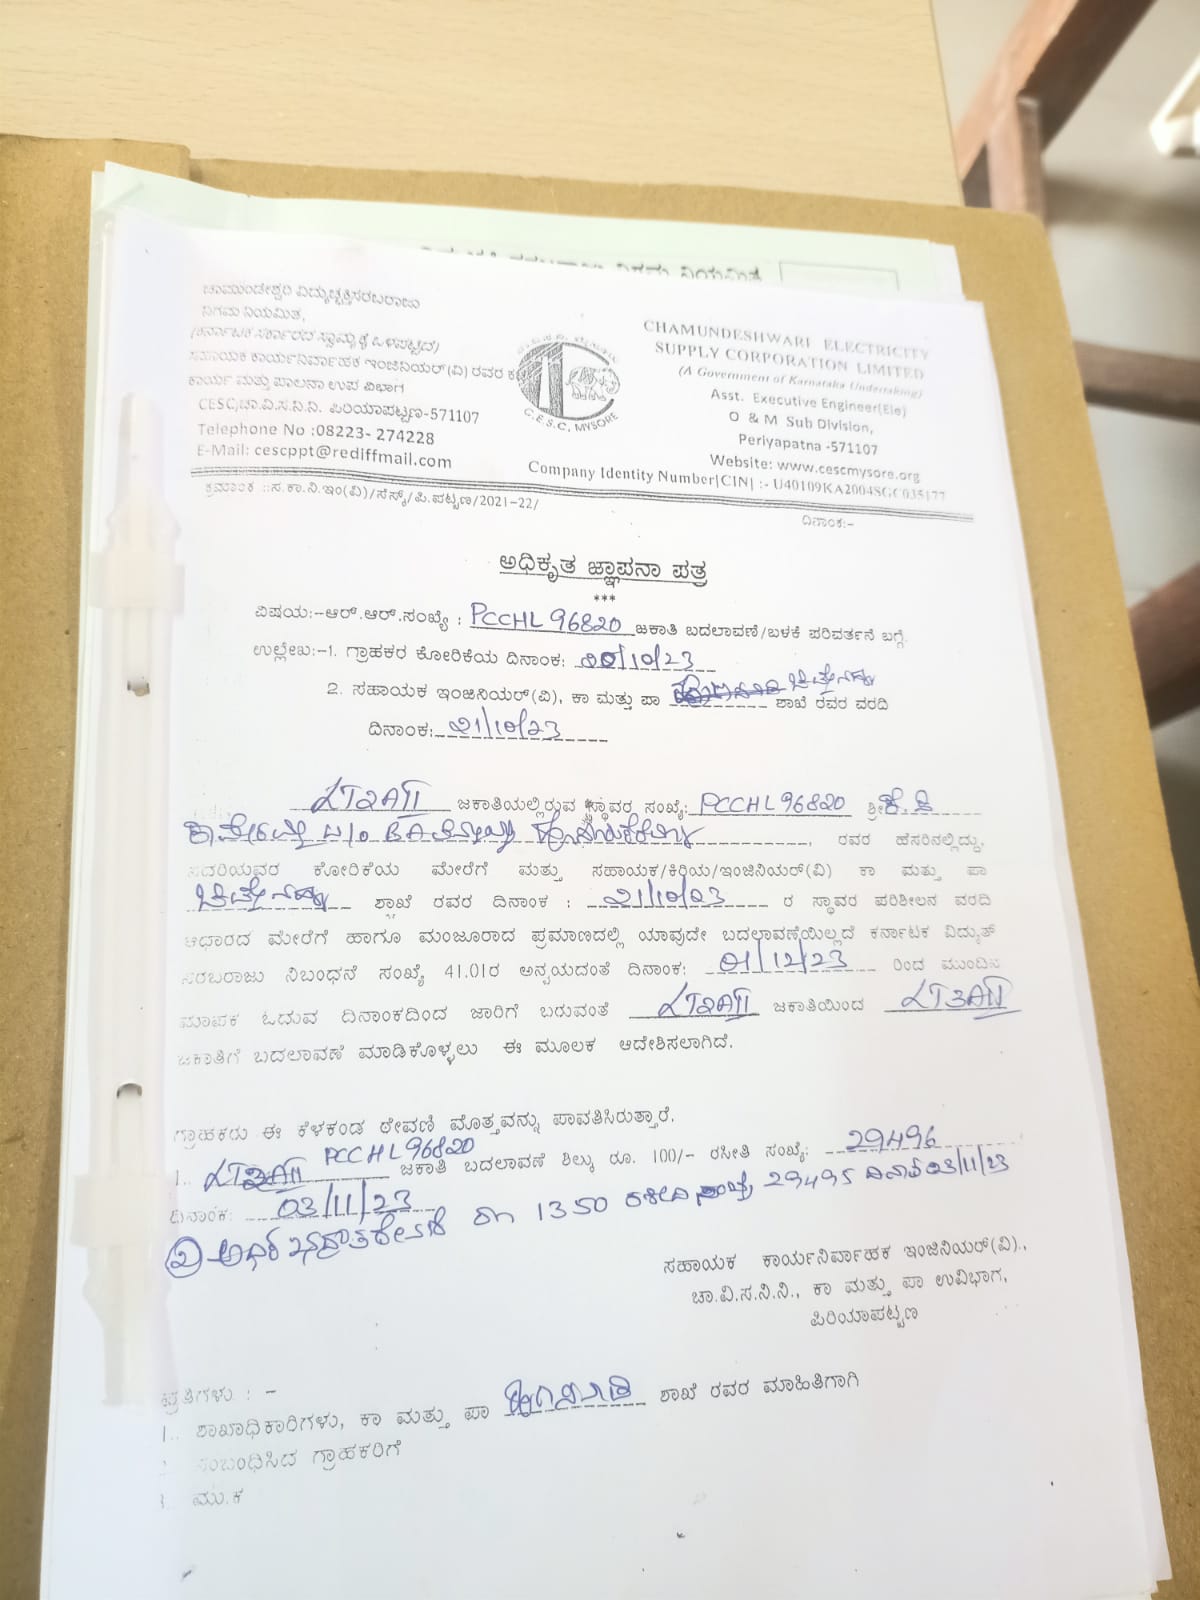 ಚಾಮುಂಡೇಶ್ವರಿ ವಿದ್ಯುಚ್ಛಕ್ತಿ ಸರಬರಾಜು
ನಿಗಮ ನಿಯಮಿತ,
(ಕರ್ನಾಟಕ ಸರ್ಕಾರದ ಸ್ವಾಮ್ಯಕ್ಕೆ ಒಳಪಟ್ಟಿದೆ)
ಸಹಾಯಕ ಕಾರ್ಯನಿರ್ವಾಹಕ ಇಂಜಿನಿಯರ್(ವಿ) ರವರ
ಕಾರ್ಯ ಮತ್ತು ಪಾಲನಾ ಉಪ ವಿಭಾಗ
CESC,ಚಾ.ವಿ.ಸ.ನಿ.ನಿ. ಪಿರಿಯಾಪಟ್ಟಣ-571107
Telephone No :08223- 274228
E-Mail: cescppt@rediffmail.com
C.E.S.C, MYSORE
CHAMUNDESHWARI ELECTRICITY
SUPPLY CORPORATION LIMITED
(A Government of Karnataka Undertaking)
Asst. Executive Engineer(Ele)
O & M Sub Division,
Periyapatna -571107
Website: www.cescmysore.org
Company Identity Number[CIN] :- U40109KA2004SGC035177
ಕ್ರಮಾಂಕ ::ಸ.ಕಾ.ನಿ.ಇಂ(ವಿ)/ಸೆಸ್ಕ್/ಪಿ.ಪಟ್ಟಣ/2021-22/
ದಿನಾಂಕ:-
ಅಧಿಕೃತ ಜ್ಞಾಪನಾ ಪತ್ರ
***
ವಿಷಯ:-ಆರ್.ಆರ್.ಸಂಖ್ಯೆ : PCCHL 96820 ಜಕಾತಿ ಬದಲಾವಣೆ/ಬಳಕೆ ಪರಿವರ್ತನೆ ಬಗ್ಗೆ.
ಉಲ್ಲೇಖ:-1. ಗ್ರಾಹಕರ ಕೋರಿಕೆಯ ದಿನಾಂಕ: 20/10/23
2. ಸಹಾಯಕ ಇಂಜಿನಿಯರ್(ವಿ), ಕಾ ಮತ್ತು ಪಾ ಶಾಖೆ ರವರ ವರದಿ
ದಿನಾಂಕ: 21/10/23
LT2AII ಜಕಾತಿಯಲ್ಲಿರುವ ಸ್ಥಾವರ ಸಂಖ್ಯೆ: PCCHL 96820 ಶ್ರೀ
ರವರ ಹೆಸರಿನಲ್ಲಿದ್ದು,
ಸದರಿಯವರ ಕೋರಿಕೆಯ ಮೇರೆಗೆ ಮತ್ತು ಸಹಾಯಕ/ಕಿರಿಯ/ಇಂಜಿನಿಯರ್(ವಿ) ಕಾ ಮತ್ತು ಪಾ
ಶಾಖೆ ರವರ ದಿನಾಂಕ : 21/10/23 ರ ಸ್ಥಾವರ ಪರಿಶೀಲನ ವರದಿ
ಆಧಾರದ ಮೇರೆಗೆ ಹಾಗೂ ಮಂಜೂರಾದ ಪ್ರಮಾಣದಲ್ಲಿ ಯಾವುದೇ ಬದಲಾವಣೆಯಿಲ್ಲದೆ ಕರ್ನಾಟಕ ವಿದ್ಯುತ್
ಸರಬರಾಜು ನಿಬಂಧನೆ ಸಂಖ್ಯೆ 41.01ರ ಅನ್ವಯದಂತೆ ದಿನಾಂಕ: 01/12/23 ರಿಂದ ಮುಂದಿನ
ಮಾಪಕ ಓದುವ ದಿನಾಂಕದಿಂದ ಜಾರಿಗೆ ಬರುವಂತೆ LT2AII ಜಕಾತಿಯಿಂದ LT3AII
ಜಕಾತಿಗೆ ಬದಲಾವಣೆ ಮಾಡಿಕೊಳ್ಳಲು ಈ ಮೂಲಕ ಆದೇಶಿಸಲಾಗಿದೆ.
ಗ್ರಾಹಕರು ಈ ಕೆಳಕಂಡ ಠೇವಣಿ ಮೊತ್ತವನ್ನು ಪಾವತಿಸಿರುತ್ತಾರೆ.
PCCHL 96820
1.. ಜಕಾತಿ ಬದಲಾವಣೆ ಶುಲ್ಕ ರೂ. 100/- ರಸೀತಿ ಸಂಖ್ಯೆ: 29496
ದಿನಾಂಕ: 03/11/23
1350 ರಶೀದಿ ಸಂಖ್ಯೆ 29495 03/11/23
ಸಹಾಯಕ ಕಾರ್ಯನಿರ್ವಾಹಕ ಇಂಜಿನಿಯರ್(ವಿ).,
ಚಾ.ವಿ.ಸ.ನಿ.ನಿ., ಕಾ ಮತ್ತು ಪಾ ಉವಿಭಾಗ,
ಪಿರಿಯಾಪಟ್ಟಣ
ಪ್ರತಿಗಳು : -
1.. ಶಾಖಾಧಿಕಾರಿಗಳು, ಕಾ ಮತ್ತು ಪಾ ಶಾಖೆ ರವರ ಮಾಹಿತಿಗಾಗಿ
ಸಂಬಂಧಿಸಿದ ಗ್ರಾಹಕರಿಗೆ
ಮು.ಕ